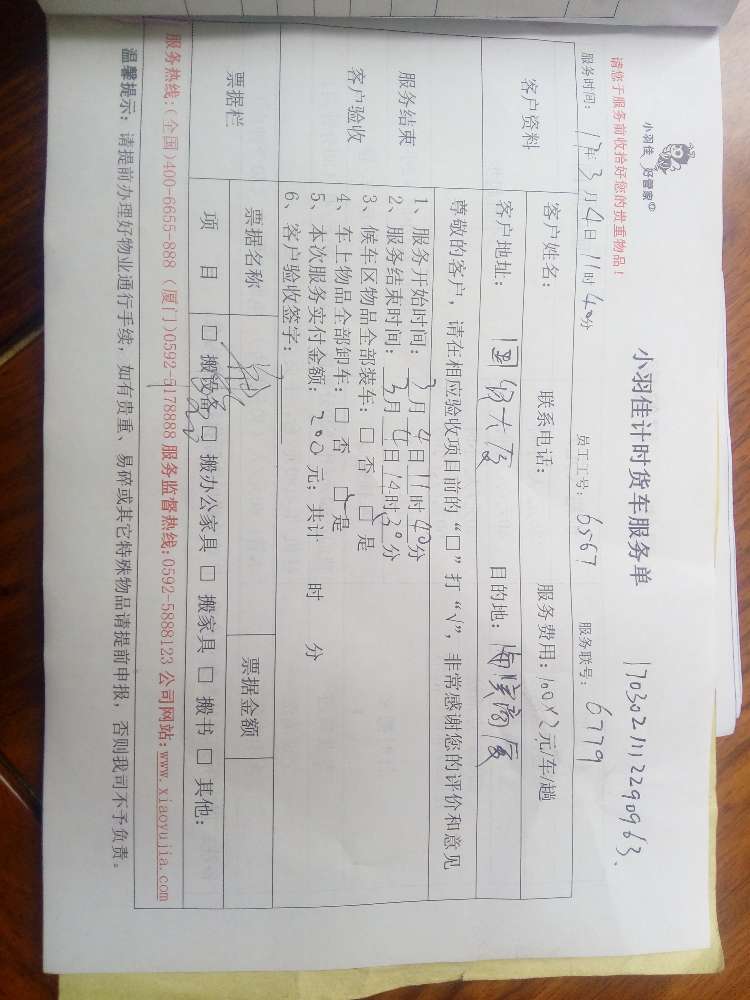 小羽佳 好管家
小羽佳计时货车服务单
1703021112290963.
请您于服务前收拾好您的贵重物品！
服务时间：17年3月4日11时40分 员工工号：6567 服务联号：6779
客户资料
客户姓名： 联系电话： 服务费用：100×2元/车/趟
客户地址：国贸大厦 目的地：海滨大厦
尊敬的客户，请在相应验收项目前的“□”打“√”，非常感谢您的评价和意见
服务结束
客户验收
1、服务开始时间：3月4日11时40分
2、服务结束时间：3月4日14时30分
3、候车区物品全部装车：□ 否 □ 是
4、车上物品全部卸车：□ 否 □ 是
5、本次服务实付金额：200元；共计 时 分
6、客户验收签字：
票据栏
票据名称 票据金额
项目 □ 搬设备 □ 搬办公家具 □ 搬家具 □ 搬书 □ 其他：
服务热线：(全国)400-6655-888 (厦门)0592-5178888 服务监督热线：0592-5888123 公司网站：www.xiaoyujia.com
温馨提示：请提前办理好物业通行手续，如有贵重、易碎或其它特殊物品请提前申报，否则我司不予负责。